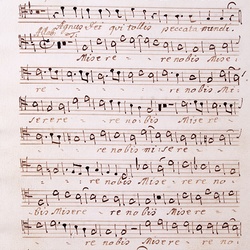 Agnus Dei qui tollis peccata mundi.
Misere re nobis Mise
serere re nobis Misere
re nobis miserere
re nobis Miserere no
bis Miserere nobis Misere
re nobis Misere no